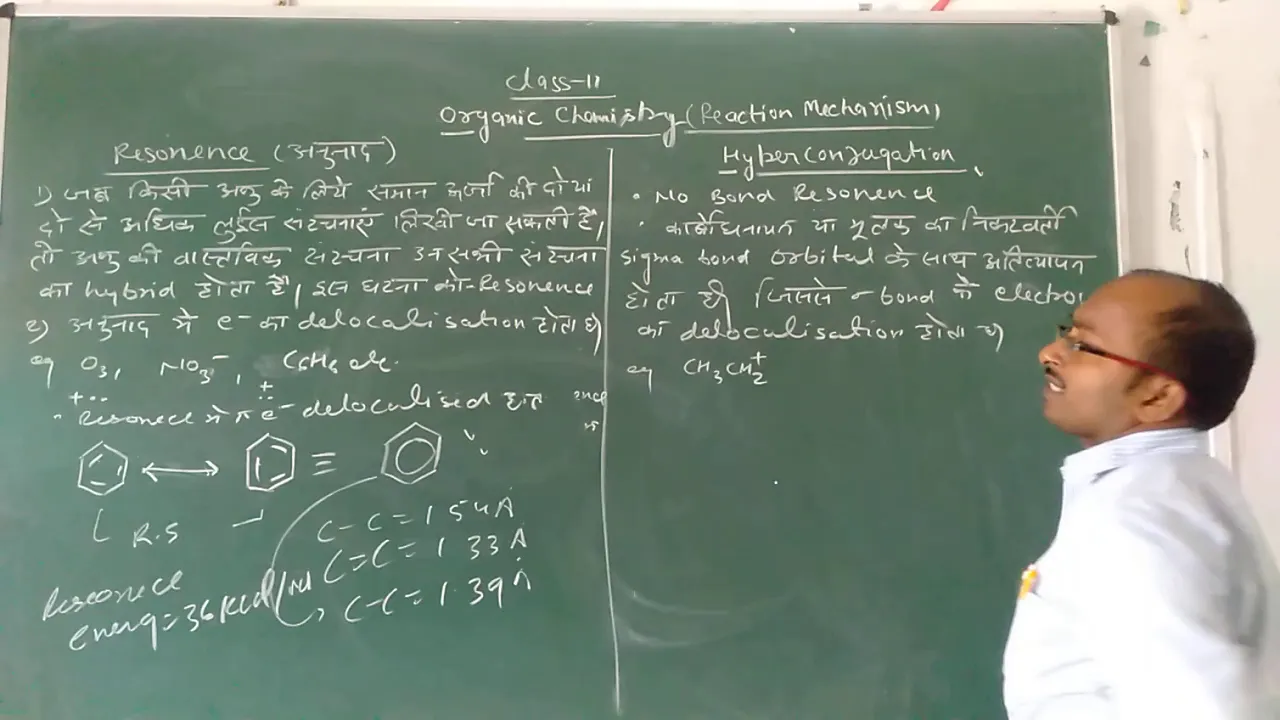 Class-11
Organic Chemistry (Reaction Mechanism)
Resonence (अनुनाद)
1) जब किसी अणु के लिये समान ऊर्जा की दो या
दो से अधिक लुईस संरचनाएं लिखी जा सकती हैं,
तो अणु की वास्तविक संरचना उन सभी संरचना
का hybrid होता है, इस घटना को Resonence
2) अनुनाद में e- का delocalisation होता है
eg O3, NO3-, C6H6 etc.
Resonece में π e- delocalised
≡
R.S
C-C = 1.54 Å
C=C = 1.33 Å
C-C = 1.39 Å
Resonece
energ = 36 Kcal/
Hyperconjugation
• No Bond Resonence
• कार्बोधनायन या मूलक का निकटवर्ती
sigma bond orbital के साथ अतिव्यापन
होता है जिससे σ-bond के electro
का delocalisation होता है
eg CH3CH2+